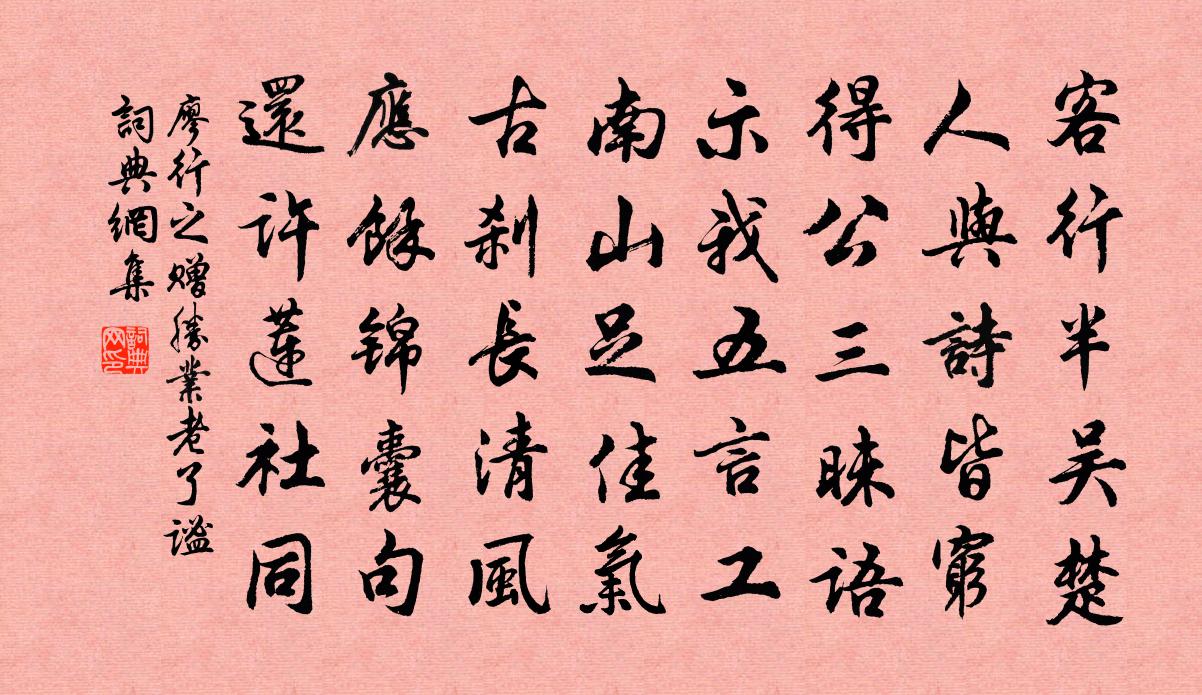 客行半吴楚
人與詩皆窮
得公三昧語
示我五言工
南山足佳氣
古刹長清風
應餘锦囊句
還許蓮社同
廖行之赠勝業老了谧
詞典網集
詞典网印